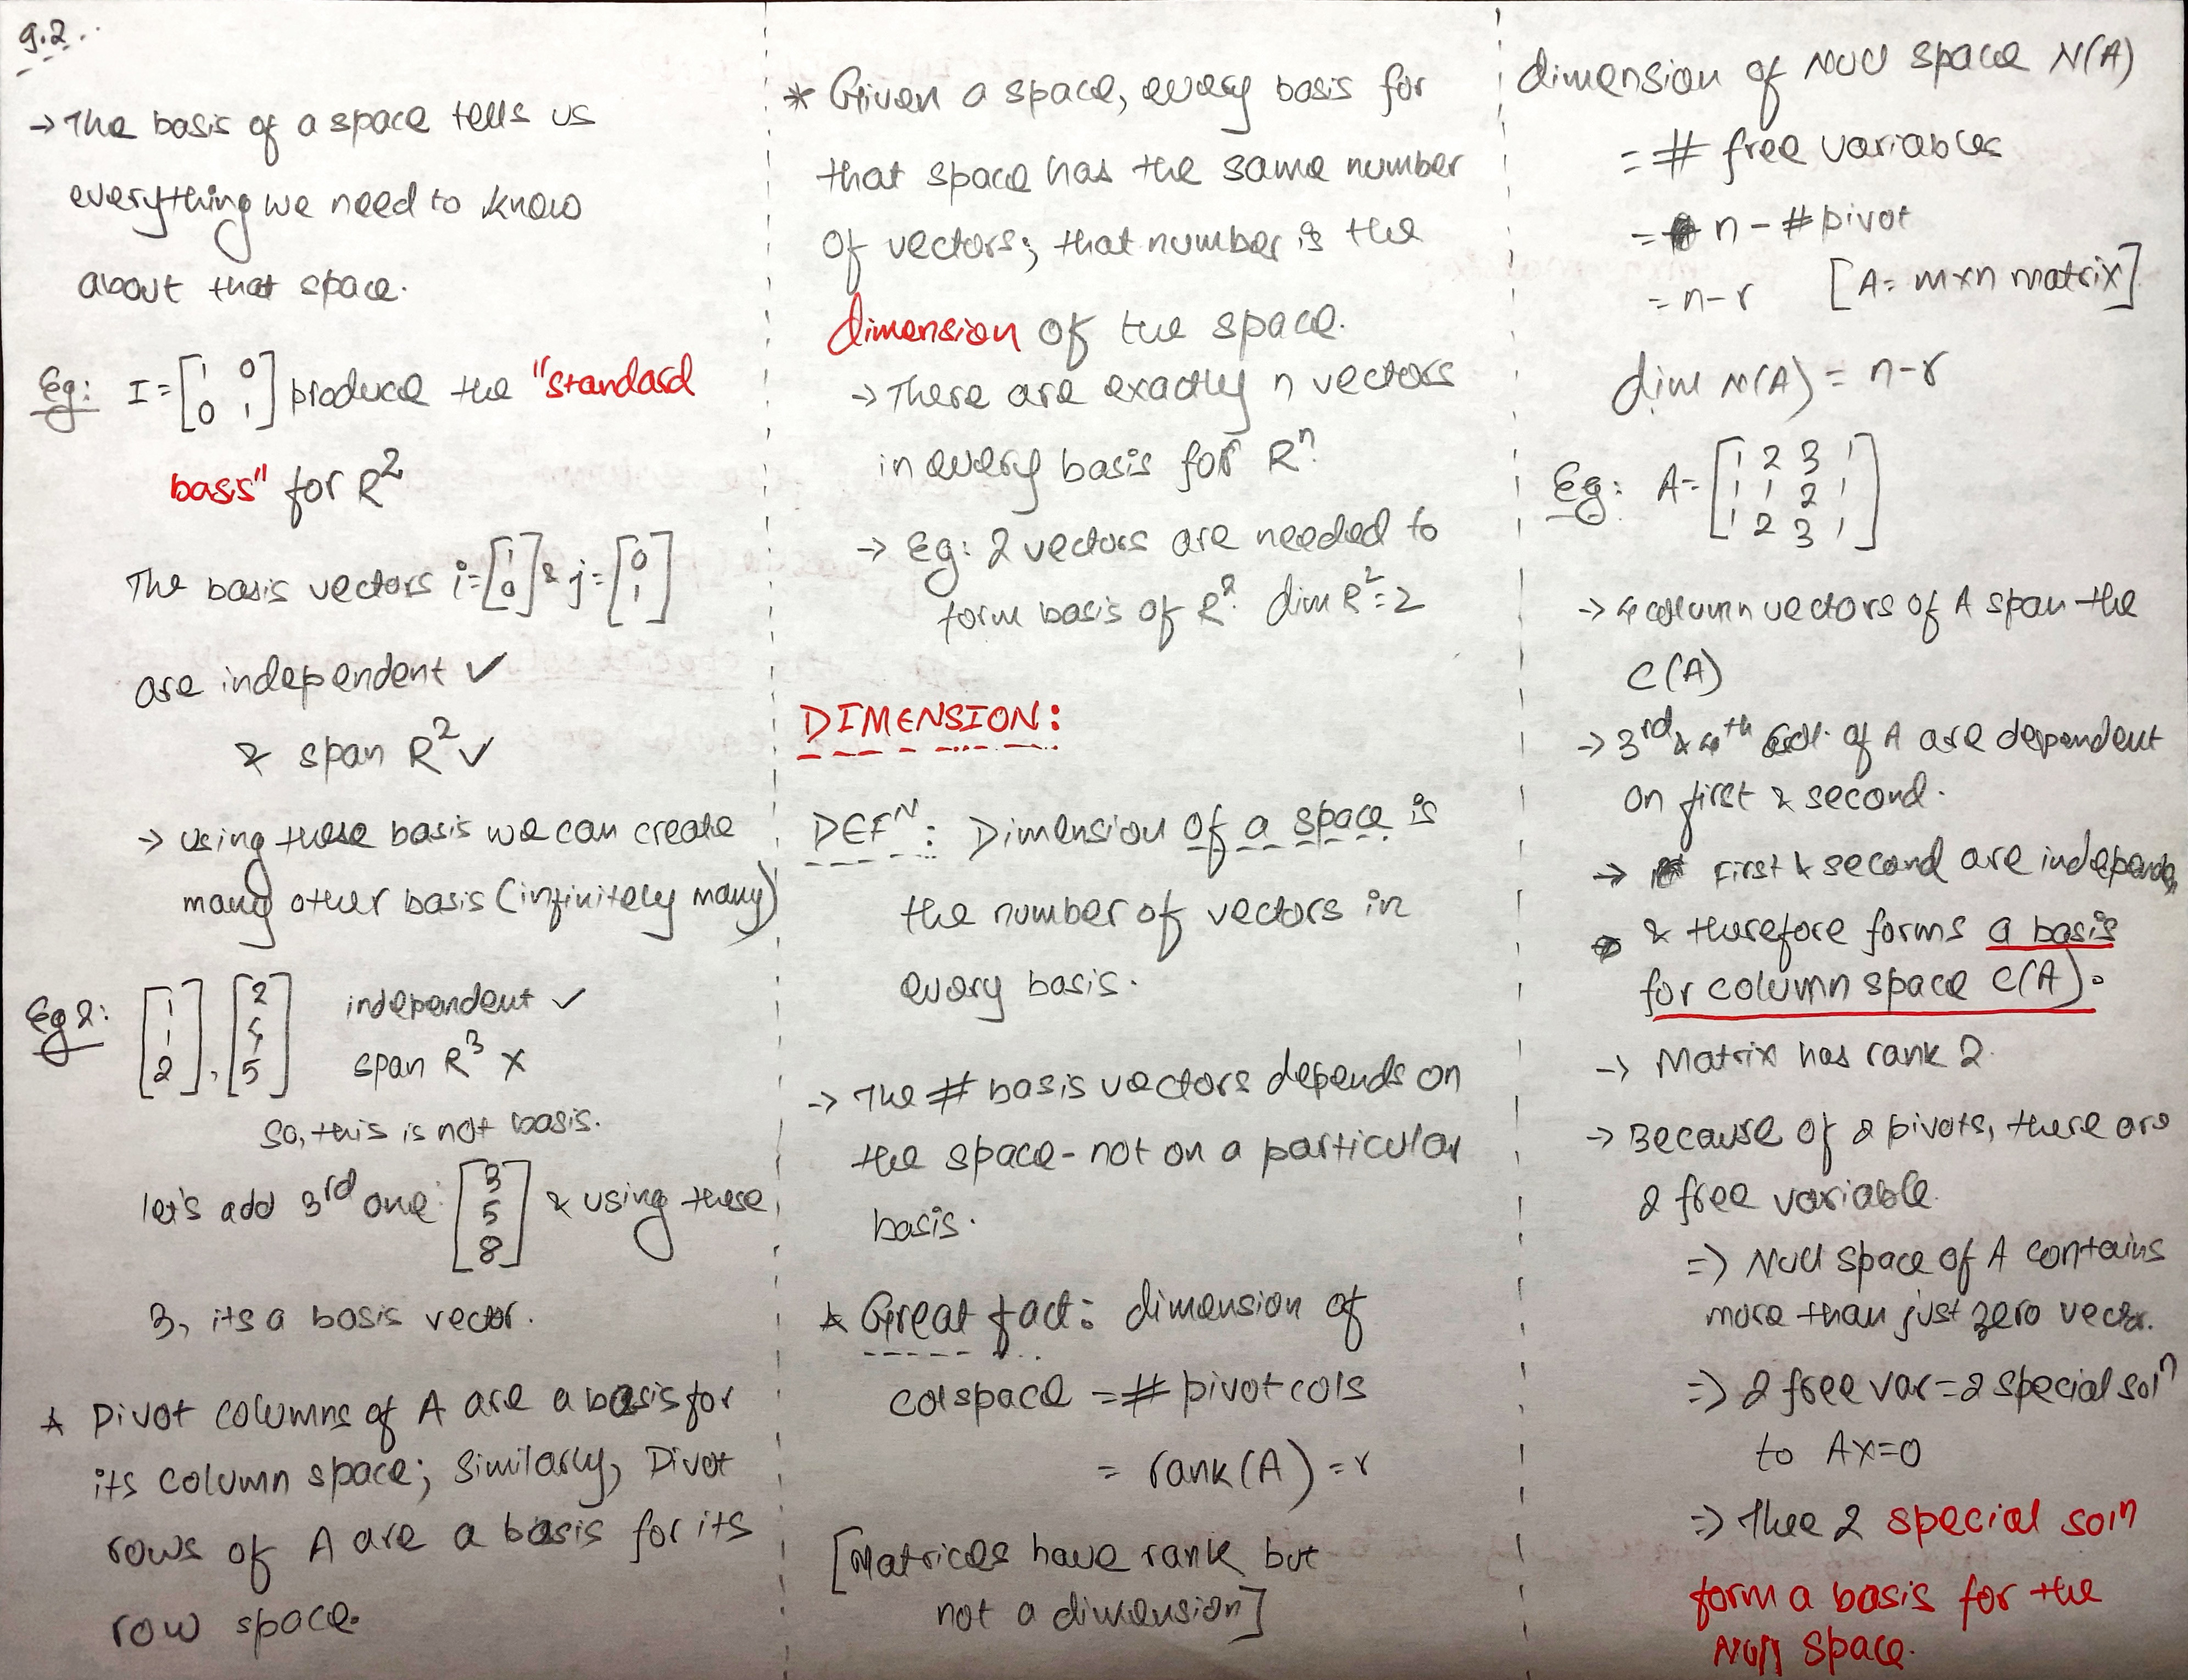 9.2
→ The basis of a space tells us
everything we need to know
about that space.
Eg: I = [1 0; 0 1] produce the "standard
basis" for R²
The basis vectors i = [1; 0] & j = [0; 1]
are independent ✓
& span R² ✓
→ Using these basis we can create
many other basis (infinitely many)
Eg 2: [1; 1; 2], [2; ; 5] independent ✓
span R³ X
So, this is not basis.
let's add 3rd one: [3; 5; 8] & using these
3, its a basis vector.
* Pivot columns of A are a basis for
its column space; Similarly, Pivot
rows of A are a basis for its
row space.
* Given a space, every basis for
that space has the same number
of vectors; that number is the
dimension of the space.
→ There are exactly n vectors
in every basis for Rⁿ.
→ Eg: 2 vectors are needed to
form basis of R². dim R² = 2
DIMENSION:
DEFᴺ: Dimension of a space is
the number of vectors in
every basis.
→ The # basis vectors depends on
the space - not on a particular
basis.
* Great fact: dimension of
colspace = # pivot cols
= rank(A) = r
[Matrices have rank but
not a dimension]
dimension of Null space N(A)
= # free variables
= n - # pivot
= n - r [A = m×n matrix]
dim N(A) = n - r
Eg: A = [1 2 3 1; 1 1 2 1; 1 2 3 1]
→ 4 column vectors of A span the
C(A)
→ 3rd & 4th col. of A are dependent
on first & second.
→ First & second are independ
& therefore forms a basis
for column space C(A).
→ Matrix has rank 2.
→ Because of 2 pivots, there are
2 free variable.
=> Null space of A contains
more than just zero vector.
=> 2 free var = 2 special solⁿ
to AX=0
=> Thee 2 special soln
form a basis for the
Null space.